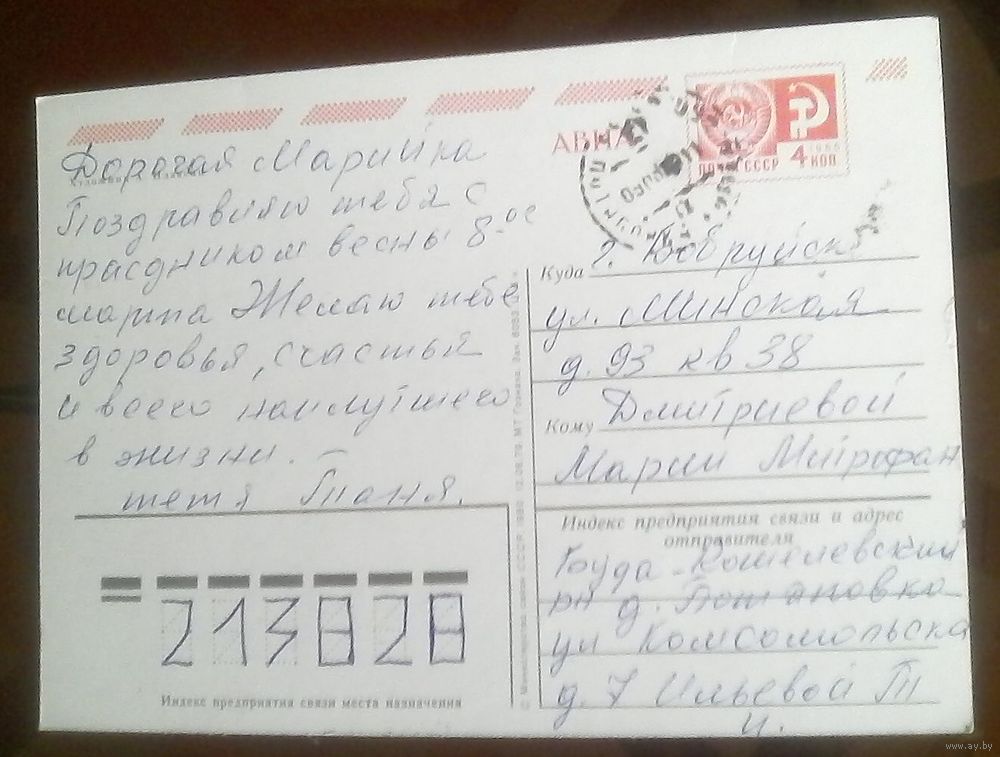 АВИА
ПОЧТА СССР
4
КОП
1966
Дорогая Марийка
Поздравляю тебя с
праздником весны 8-ое
марта Желаю тебе
здоровья, счастья
и всего наилутшего
в жизни.
тетя Таня.
213828
Индекс предприятия связи места назначения
© Министерство связи СССР 1980
Куда г. Бобруйск
ул. Минская
д. 93 кв 38
Кому Дмитриевой
Марии Митрофан
Индекс предприятия связи и адрес
отправителя
Буда-Кошелевский
рн д.
ул Комсомольска
д. 7 Ильевой Т
И.
www.ay.by